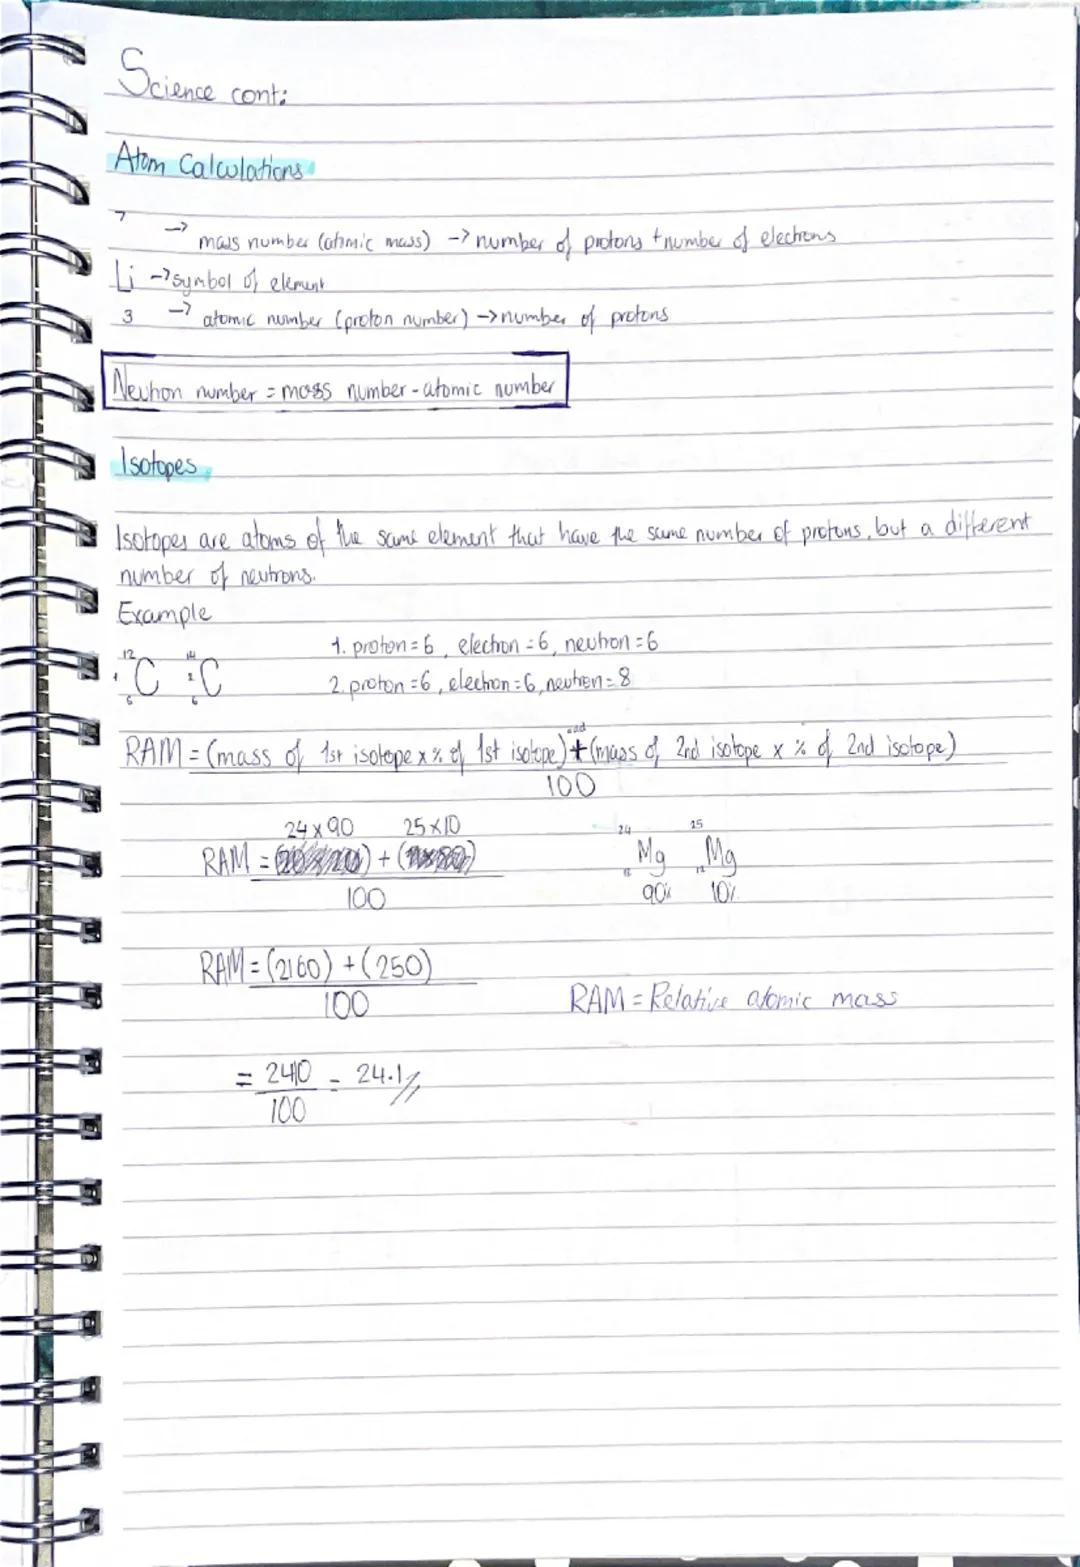 Science cont:
Atom Calculations
7 → mass number (atomic mass) → number of protons + number of electrons
Li → symbol of element
3 → atomic number (proton number) → number of protons
Neutron number = mass number - atomic number
Isotopes
Isotopes are atoms of the same element that have the same number of protons, but a different
number of neutrons.
Example
12 14
1 C 2 C
6 6
1. proton = 6, electron = 6, neutron = 6
2. proton = 6, electron = 6, neutron = 8
add
RAM = (mass of 1st isotope x % of 1st isotope) + (mass of 2nd isotope x % of 2nd isotope)
100
24 x 90 25 x 10
RAM = ( ) + ( )
100
24 25
Mg Mg
12 12
90% 10%
RAM = (2160) + (250)
100
RAM = Relative atomic mass
= 2410 = 24.1
100